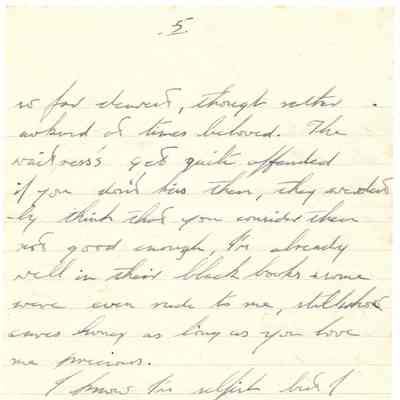 5
so far dearest, though rather
awkard at times beloved. The
waitress's get quite offended
if you don't kiss them, they
-ly think that you consider them
not good enough, I'm already
well in their black books & some
were even rude to me, still who
cares honey as long as you love
me precious.
I know I'm selfish but I